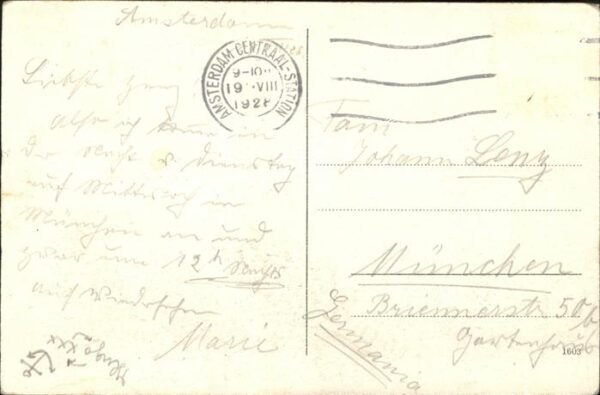 Amsterdam
AMSTERDAM CENTRAAL-STATION
9-10
19 VIII
192
also ich in
der Nacht v. Dienstag
auf Mittwoch in
München an und
zwar um 12h Nachts
auf Wiedersehen
Marie
Fam
Johann Lenz
München
Briennerstr 50/b
Gartenhaus
Germania
1603